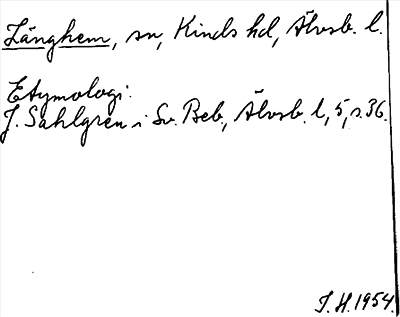 Länghem, sn, Kinds hd, Älvsb. l.
Etymologi:
J. Sahlgren i Sv. Beb., Älvsb. l, 5, s. 36.
J. H. 1954.